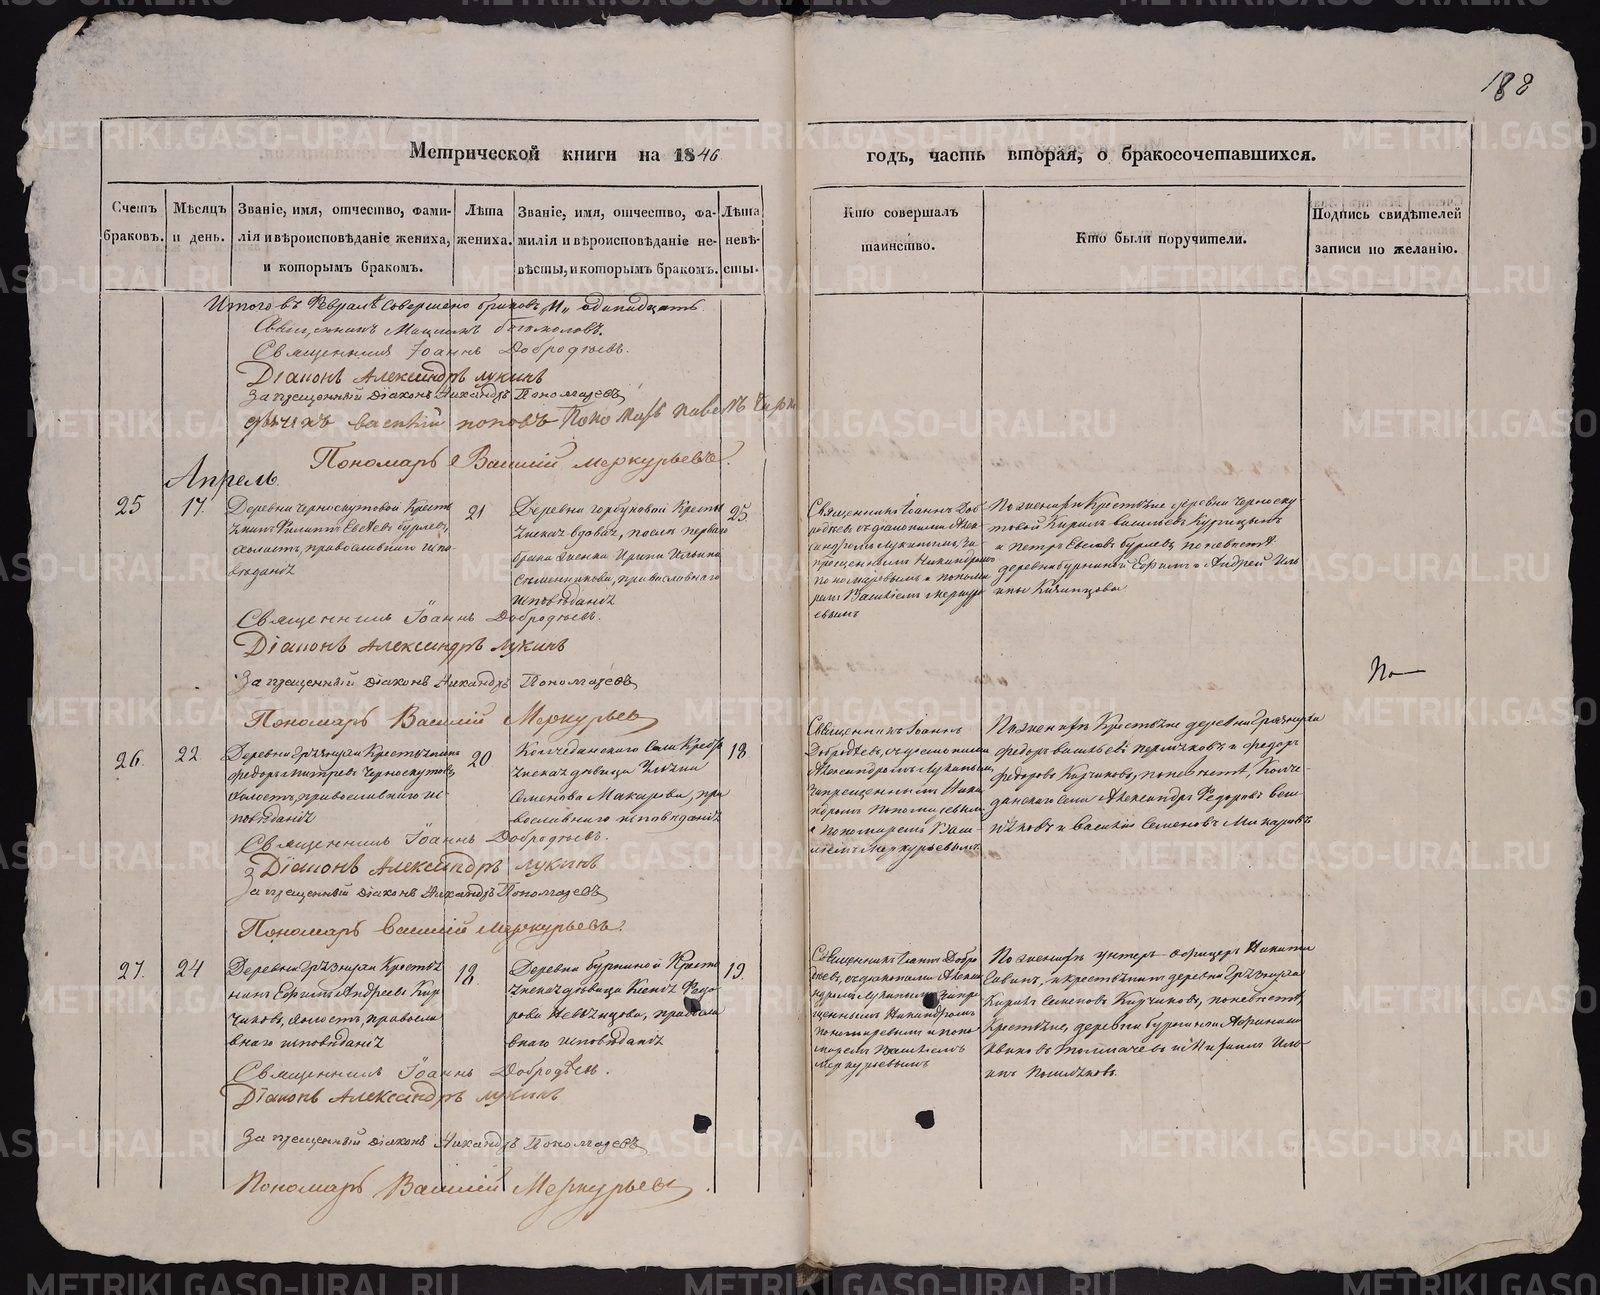 188
Метрической книги на 1846
годъ, часть вторая, о бракосочетавшихся.
Счетъ браковъ.
Мѣсяцъ и день.
Званіе, имя, отчество, фами-
лія и вѣроисповѣданіе жениха,
и которымъ бракомъ.
Лѣта
жениха.
Званіе, имя, отчество, фа-
милія и вѣроисповѣданіе не-
вѣсты, и которымъ бракомъ.
Лѣта
невѣ-
сты.
Кто совершалъ
таинство.
Кто были поручители.
Подпись свидѣтелей
записи по желанію.
Итого въ Февралѣ совершено браковъ 11 одинадцать
Священникъ Максимъ Богомоловъ.
Священникъ Іоаннъ Добродѣевъ.
Діаконъ Александръ Лукинъ
Запрещенный діаконъ Никандръ Пономаревъ
дьячекъ Василій Поповъ Пономарь Павелъ
Пономарь Василій Меркурьевъ.
Апрѣль
25
17
Деревни Черноскутовой Крестья
нинъ Филиппъ Евсѣевъ Бурлевъ,
холостъ, православнаго испо-
вѣданія
21
Деревни Горбуновой Крестья
нская вдова, послѣ перваго
брака женка Ирина Ильина
православнаго
исповѣданія
25
Священникъ Іоаннъ Доб-
родѣевъ съ діаконами Алек-
сандромъ Лукинымъ, за-
прещеннымъ Никандромъ
Пономаревымъ и понома
ремъ Василіемъ Меркурь
евымъ
По женихѣ Крестьяне деревни Черноску-
товой Кирилъ Васильевъ
и Петръ Евсѣевъ Бурлевъ, по невѣстѣ
деревни Бурниной Ефимъ и Андрей Иль
ины
Священникъ Іоаннъ Добродѣевъ.
Діаконъ Александръ Лукинъ
Запрещенный діаконъ Никандръ Пономаревъ
Пономарь Василій Меркурьевъ
26.
22
Деревни Грязнухи Крестьянинъ
Федоръ Дмитревъ Черноскутовъ,
холостъ, православнаго ис-
повѣданія
20
Колчеданскаго Села Кресть
янская дѣвица Ульяна
Семенова Макарова, пра
вославнаго исповѣданія
18
Священникъ Іоаннъ
Добродѣевъ, съ діаконами
Александромъ Лукинымъ,
Запрещеннымъ Ника
ндромъ Пономаревымъ
и Пономаремъ Васи-
ліемъ Меркурьевымъ.
По женихѣ Крестьяне деревни Грязнухи
Федоръ Васильевъ Пермяковъ и Федоръ
Федоровъ Кирчиковъ, по невѣстѣ, Колче-
данскаго села Александръ Федоровъ
и Василій Семеновъ Макаровъ
Священникъ Іоаннъ Добродѣевъ.
Діаконъ Александръ Лукинъ
Запрещенный діаконъ Никандръ Пономаревъ
Пономарь Василій Меркурьевъ.
27.
24
Деревни Грязнухи Крестья
нинъ Ефимъ Андреевъ Кир
чиковъ, холостъ, правосла
внаго исповѣданія
18.
Деревни Бурниной Крестья
нская дѣвица Ксенія Федо
рова Невьянцова, правосла
внаго исповѣданія
19.
Священникъ Іоаннъ Добро
дѣевъ, съ діаконами Алекса
ндромъ Лукинымъ, Запре
щеннымъ Никандромъ
Пономаревымъ и поно
маремъ Василіемъ
Меркурьевымъ
По женихѣ унтеръ-офицеръ Никита
Савинъ, и крестьянинъ деревни Грязнухи
Кирилъ Семеновъ Кирчиковъ, по невѣстѣ,
Крестьяне, деревни Бурниной Афанасій
Ивановъ Толмачевъ и
Священникъ Іоаннъ Добродѣевъ.
Діаконъ Александръ Лукинъ
Запрещенный діаконъ Никандръ Пономаревъ
Пономарь Василій Меркурьевъ.
METRIKI.GASO-URAL.RU